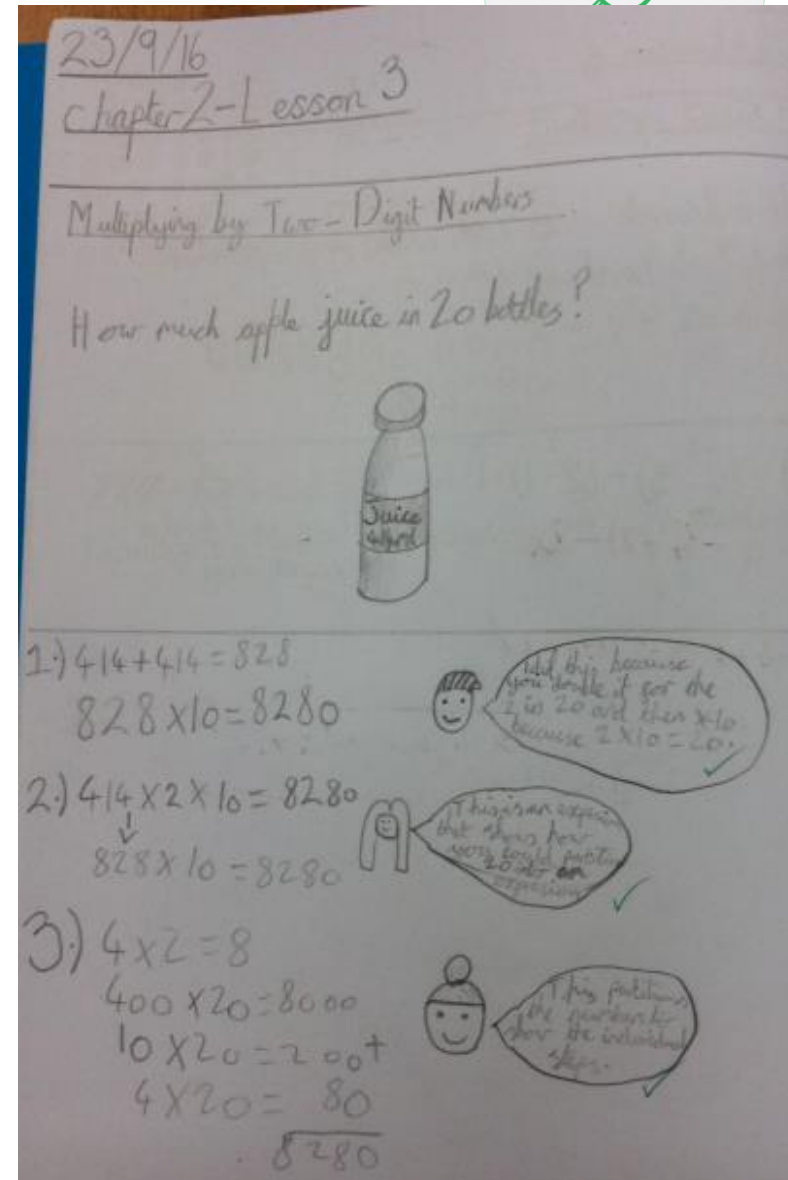 23/9/16
Chapter 2 - Lesson 3
Multiplying by Two-Digit Numbers
How much apple juice in 20 bottles?
Juice
1.) 414+414=828
828x10=8280
I did this because
you double it for the
2 in 20 and then x10
because 2x10=20.
2.) 414x2x10=8280
828x10=8280
This is an expression
that shows how
you could partition
20 into an
expression
3.) 4x2=8
400x20=8000
10x20=200+
4x20= 80
8280
This partitions
the numbers to
show the individual
steps.